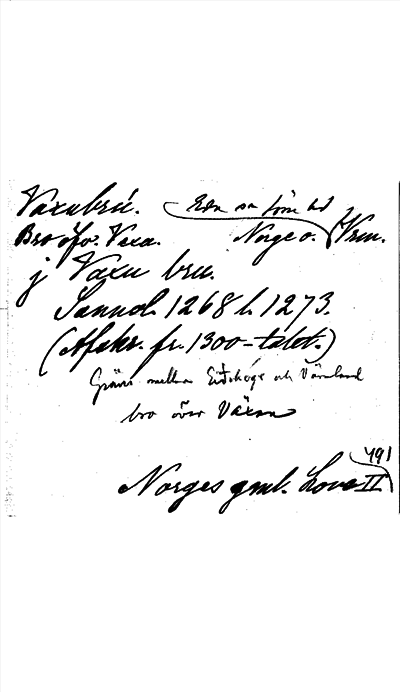 Vaxubrú.
Bro öfv. Vexa. Norge o. Vrm.
j Vaxu bru.
Sannol. 1268 l. 1273.
(Afskr. fr. 1300-talet.)
Gräns mellan Eidskogr och Värmland
bro över Växan
491
Norges gml. Love II